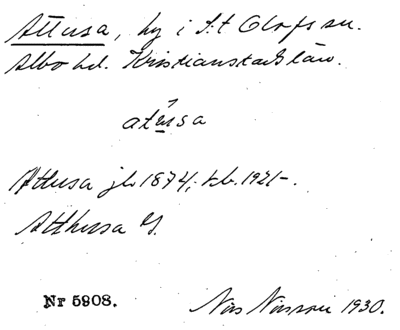 Attusa, by i S:t Olofs sn.
Albo hd. Kristianstads län.
atusa
Attusa jb 1874; tkb. 1921-.
Atthusa G.
Nr 5908.
Nils Nilsson 1930.